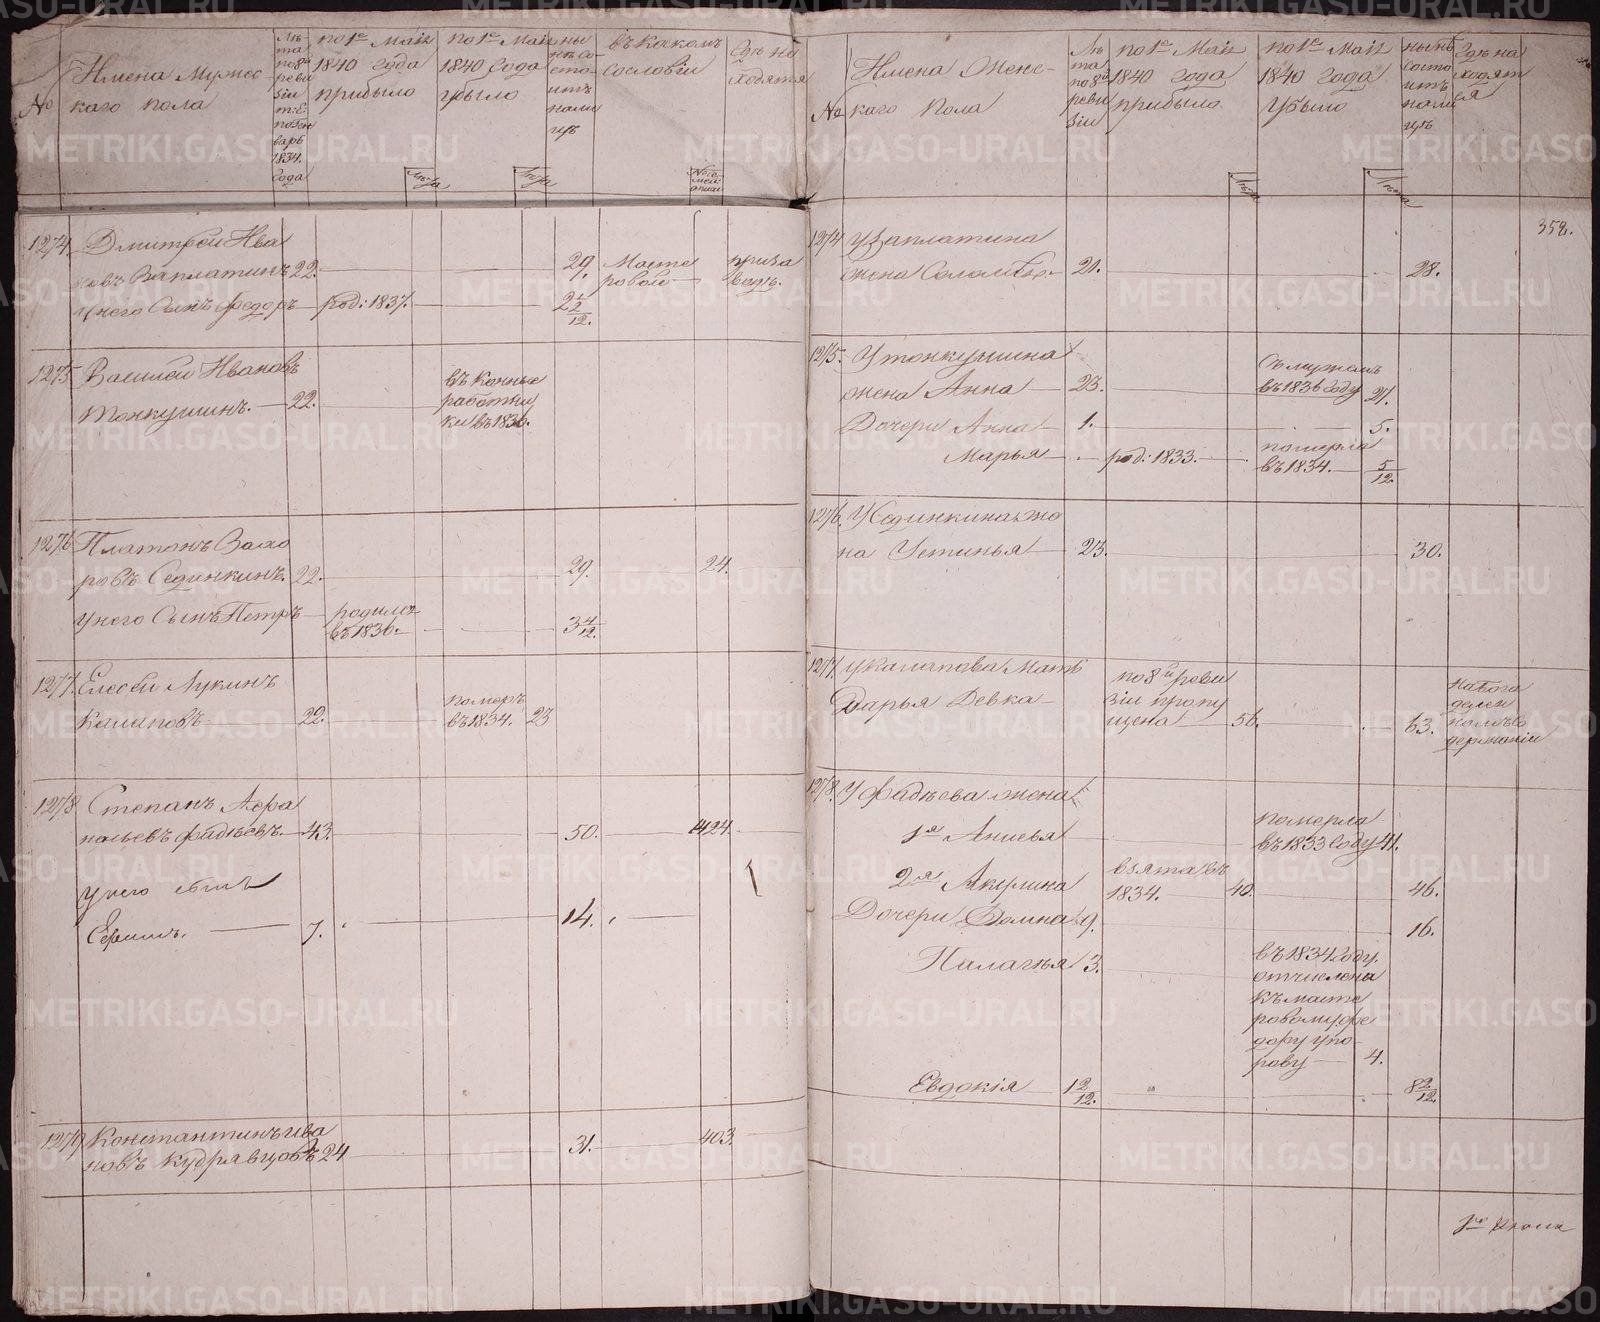 №
Имена Мужес-
каго пола
Лѣ-
та
по 8й
реви
зіи
по Ген
варь
1834.
Года
по 1е Маія
1840 года
прибыло
Лѣта
по 1е Маія
1840 года
убыло
Лѣта
ны
нѣ со
сто-
итъ
нали
цо
въ какомъ
сословіи
Гдѣ на
ходятся
1274.
Дмитрей Ива
новъ Заплатинъ 22. 29. Масте
ровой
при за
водѣ.
у него Сынъ Федоръ — род: 1837. 2 2/12.
1275.
Василей Ивановъ
Тонкушинъ. — 22.
въ Конные
работни
ки въ 1836.
1276.
Платонъ Заха
ровъ Сединкинъ. 22. 29. 24.
у него Сынъ Петръ — родился
въ 1836. 3 4/12.
1277.
Елесей Лукинъ
Калаповъ 22. померъ
въ 1834. 23
1278.
Степанъ Афа
насьевъ Фадѣевъ. — 43. 50. 424.
у него сынъ
Ефимъ. — 7. 14.
1279.
Константинъ Ива
новъ Кудрявцовъ 24 31. 403.
№
Имена Женс-
каго пола
Лѣ
та
по 8й
реви
зіи
по 1е Маія
1840 года
прибыло
Лѣта
по 1е Маія
1840 года
убыло
Лѣта
нынѣ
состо
итъ
нали
цо
Гдѣ на
ходят
ся
358.
1274
У Заплатина
жена Соломея — 21. 28.
1275.
У Тонкушина
жена Анна — 23. съ мужемъ
въ 1836 году 27.
Дочери Анна — 1. 5.
Марья — род: 1833. — померла
въ 1834. — 5/12.
1276.
У Сединкина же
на Устинья — 23. 30.
1277.
У Калапова Мать
Дарья Девка — по 8й реви
зіи пропу
щена 56. 63.
на бога
делен
номъ со
держаніи
1278.
У Фадѣева жена
1я Анисья померла
въ 1833 году 41.
2я Акулина взята въ
1834. — 40. 46.
Дочери Домна 9. 16.
Палагья 3.
въ 1834 году.
отчислена
къ масте
ровому Фе
дору Упо-
рову — 4.
Евдокія — 1 2/12. 8 2/12.
METRIKI.GASO-URAL.RU